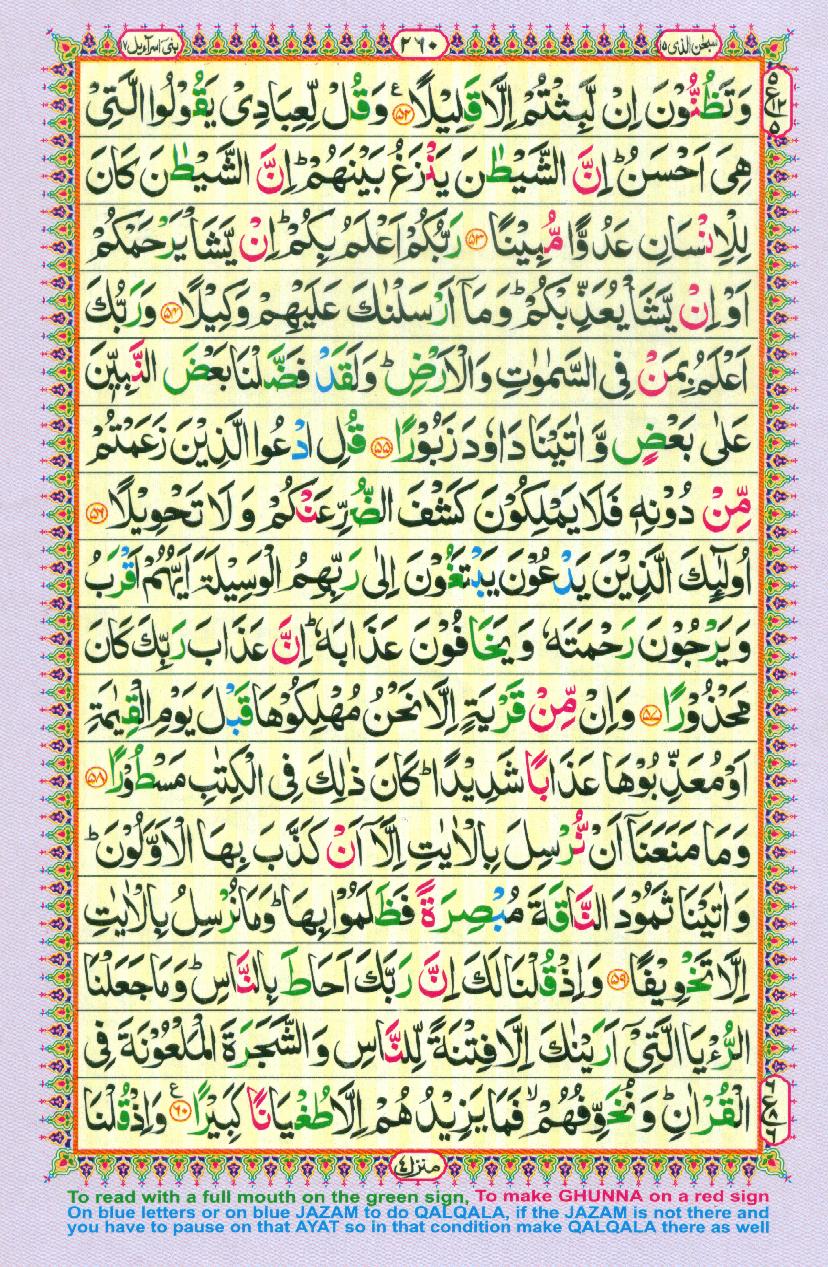 سبحٰن الذی ۱۵
۲۶۰
بنی اسرآءیل ۱۷
وَتَظُنُّوۡنَ اِنۡ لَّبِثۡتُمۡ اِلَّا قَلِيۡلًا ﴿۵۲﴾ ع وَقُلۡ لِّعِبَادِىۡ يَقُوۡلُوا الَّتِىۡ
هِىَ اَحۡسَنُ‌ؕ اِنَّ الشَّيۡطٰنَ يَنۡزَغُ بَيۡنَهُمۡ‌ؕ اِنَّ الشَّيۡطٰنَ كَانَ
لِلۡاِنۡسَانِ عَدُوًّا مُّبِيۡنًا ﴿۵۳﴾ رَبُّكُمۡ اَعۡلَمُ بِكُمۡ‌ؕ اِنۡ يَّشَاۡ يَرۡحَمۡكُمۡ
اَوۡ اِنۡ يَّشَاۡ يُعَذِّبۡكُمۡ‌ؕ وَمَاۤ اَرۡسَلۡنٰكَ عَلَيۡهِمۡ وَكِيۡلًا ﴿۵۴﴾ وَرَبُّكَ
اَعۡلَمُ بِمَنۡ فِى السَّمٰوٰتِ وَالۡاَرۡضِ‌ؕ وَلَقَدۡ فَضَّلۡنَا بَعۡضَ النَّبِيّٖنَ
عَلٰى بَعۡضٍ وَّاٰتَيۡنَا دَاوٗدَ زَبُوۡرًا ﴿۵۵﴾ قُلِ ادۡعُوا الَّذِيۡنَ زَعَمۡتُمۡ
مِّنۡ دُوۡنِهٖ فَلَا يَمۡلِكُوۡنَ كَشۡفَ الضُّرِّ عَنۡكُمۡ وَلَا تَحۡوِيۡلًا ﴿۵۶﴾
اُولٰٓٮِٕكَ الَّذِيۡنَ يَدۡعُوۡنَ يَبۡتَغُوۡنَ اِلٰى رَبِّهِمُ الۡوَسِيۡلَةَ اَيُّهُمۡ اَقۡرَبُ
وَيَرۡجُوۡنَ رَحۡمَتَهٗ وَيَخَافُوۡنَ عَذَابَهٗؕ اِنَّ عَذَابَ رَبِّكَ كَانَ
مَحۡذُوۡرًا ﴿۵۷﴾ وَاِنۡ مِّنۡ قَرۡيَةٍ اِلَّا نَحۡنُ مُهۡلِكُوۡهَا قَبۡلَ يَوۡمِ الۡقِيٰمَةِ
اَوۡ مُعَذِّبُوۡهَا عَذَابًا شَدِيۡدًا‌ؕ كَانَ ذٰلِكَ فِى الۡكِتٰبِ مَسۡطُوۡرًا ﴿۵۸﴾
وَمَا مَنَعَنَاۤ اَنۡ نُّرۡسِلَ بِالۡاٰيٰتِ اِلَّاۤ اَنۡ كَذَّبَ بِهَا الۡاَوَّلُوۡنَ‌ؕ
وَاٰتَيۡنَا ثَمُوۡدَ النَّاقَةَ مُبۡصِرَةً فَظَلَمُوۡا بِهَا‌ؕ وَمَا نُرۡسِلُ بِالۡاٰيٰتِ
اِلَّا تَخۡوِيۡفًا ﴿۵۹﴾ وَاِذۡ قُلۡنَا لَكَ اِنَّ رَبَّكَ اَحَاطَ بِالنَّاسِ‌ؕ وَمَا جَعَلۡنَا
الرُّءۡيَا الَّتِىۡۤ اَرَيۡنٰكَ اِلَّا فِتۡنَةً لِّلنَّاسِ وَالشَّجَرَةَ الۡمَلۡعُوۡنَةَ فِى
الۡقُرۡاٰنِ‌ؕ وَنُخَوِّفُهُمۡۙ فَمَا يَزِيۡدُهُمۡ اِلَّا طُغۡيَانًا كَبِيۡرًا ﴿۶۰﴾ ع وَاِذۡ قُلۡنَا
منزل ٤
To read with a full mouth on the green sign, To make GHUNNA on a red sign
On blue letters or on blue JAZAM to do QALQALA, if the JAZAM is not there and
you have to pause on that AYAT so in that condition make QALQALA there as well